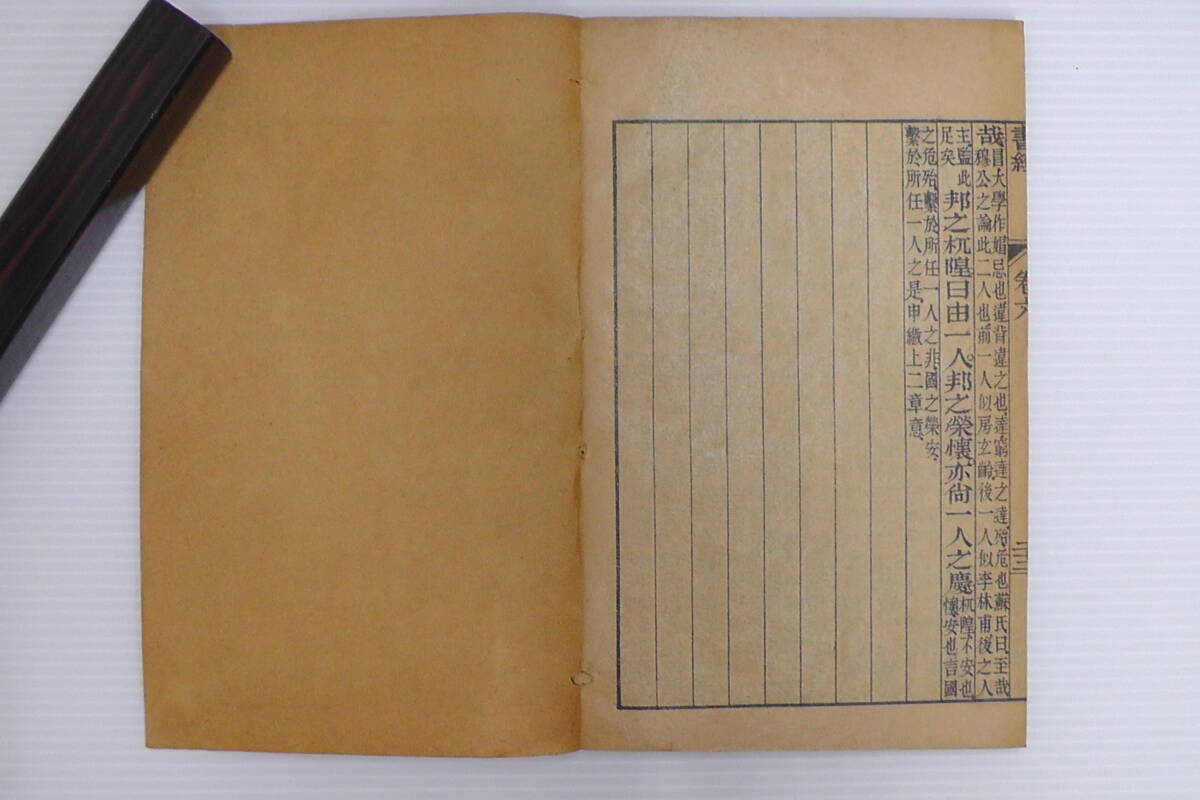 書經
卷六
哉冒大學作媢忌也違背違之也達窮達之達殆危也蘇氏曰至哉
穆公之論此二人也前一人似房玄齡後一人似李林甫後之人
主監此
足矣
邦之杌隉曰由一人邦之榮懷亦尚一人之慶
杌隉不安也
懷安也言國
之危殆繫於所任一人之非國之榮安
繫於所任一人之是申繳上二章意